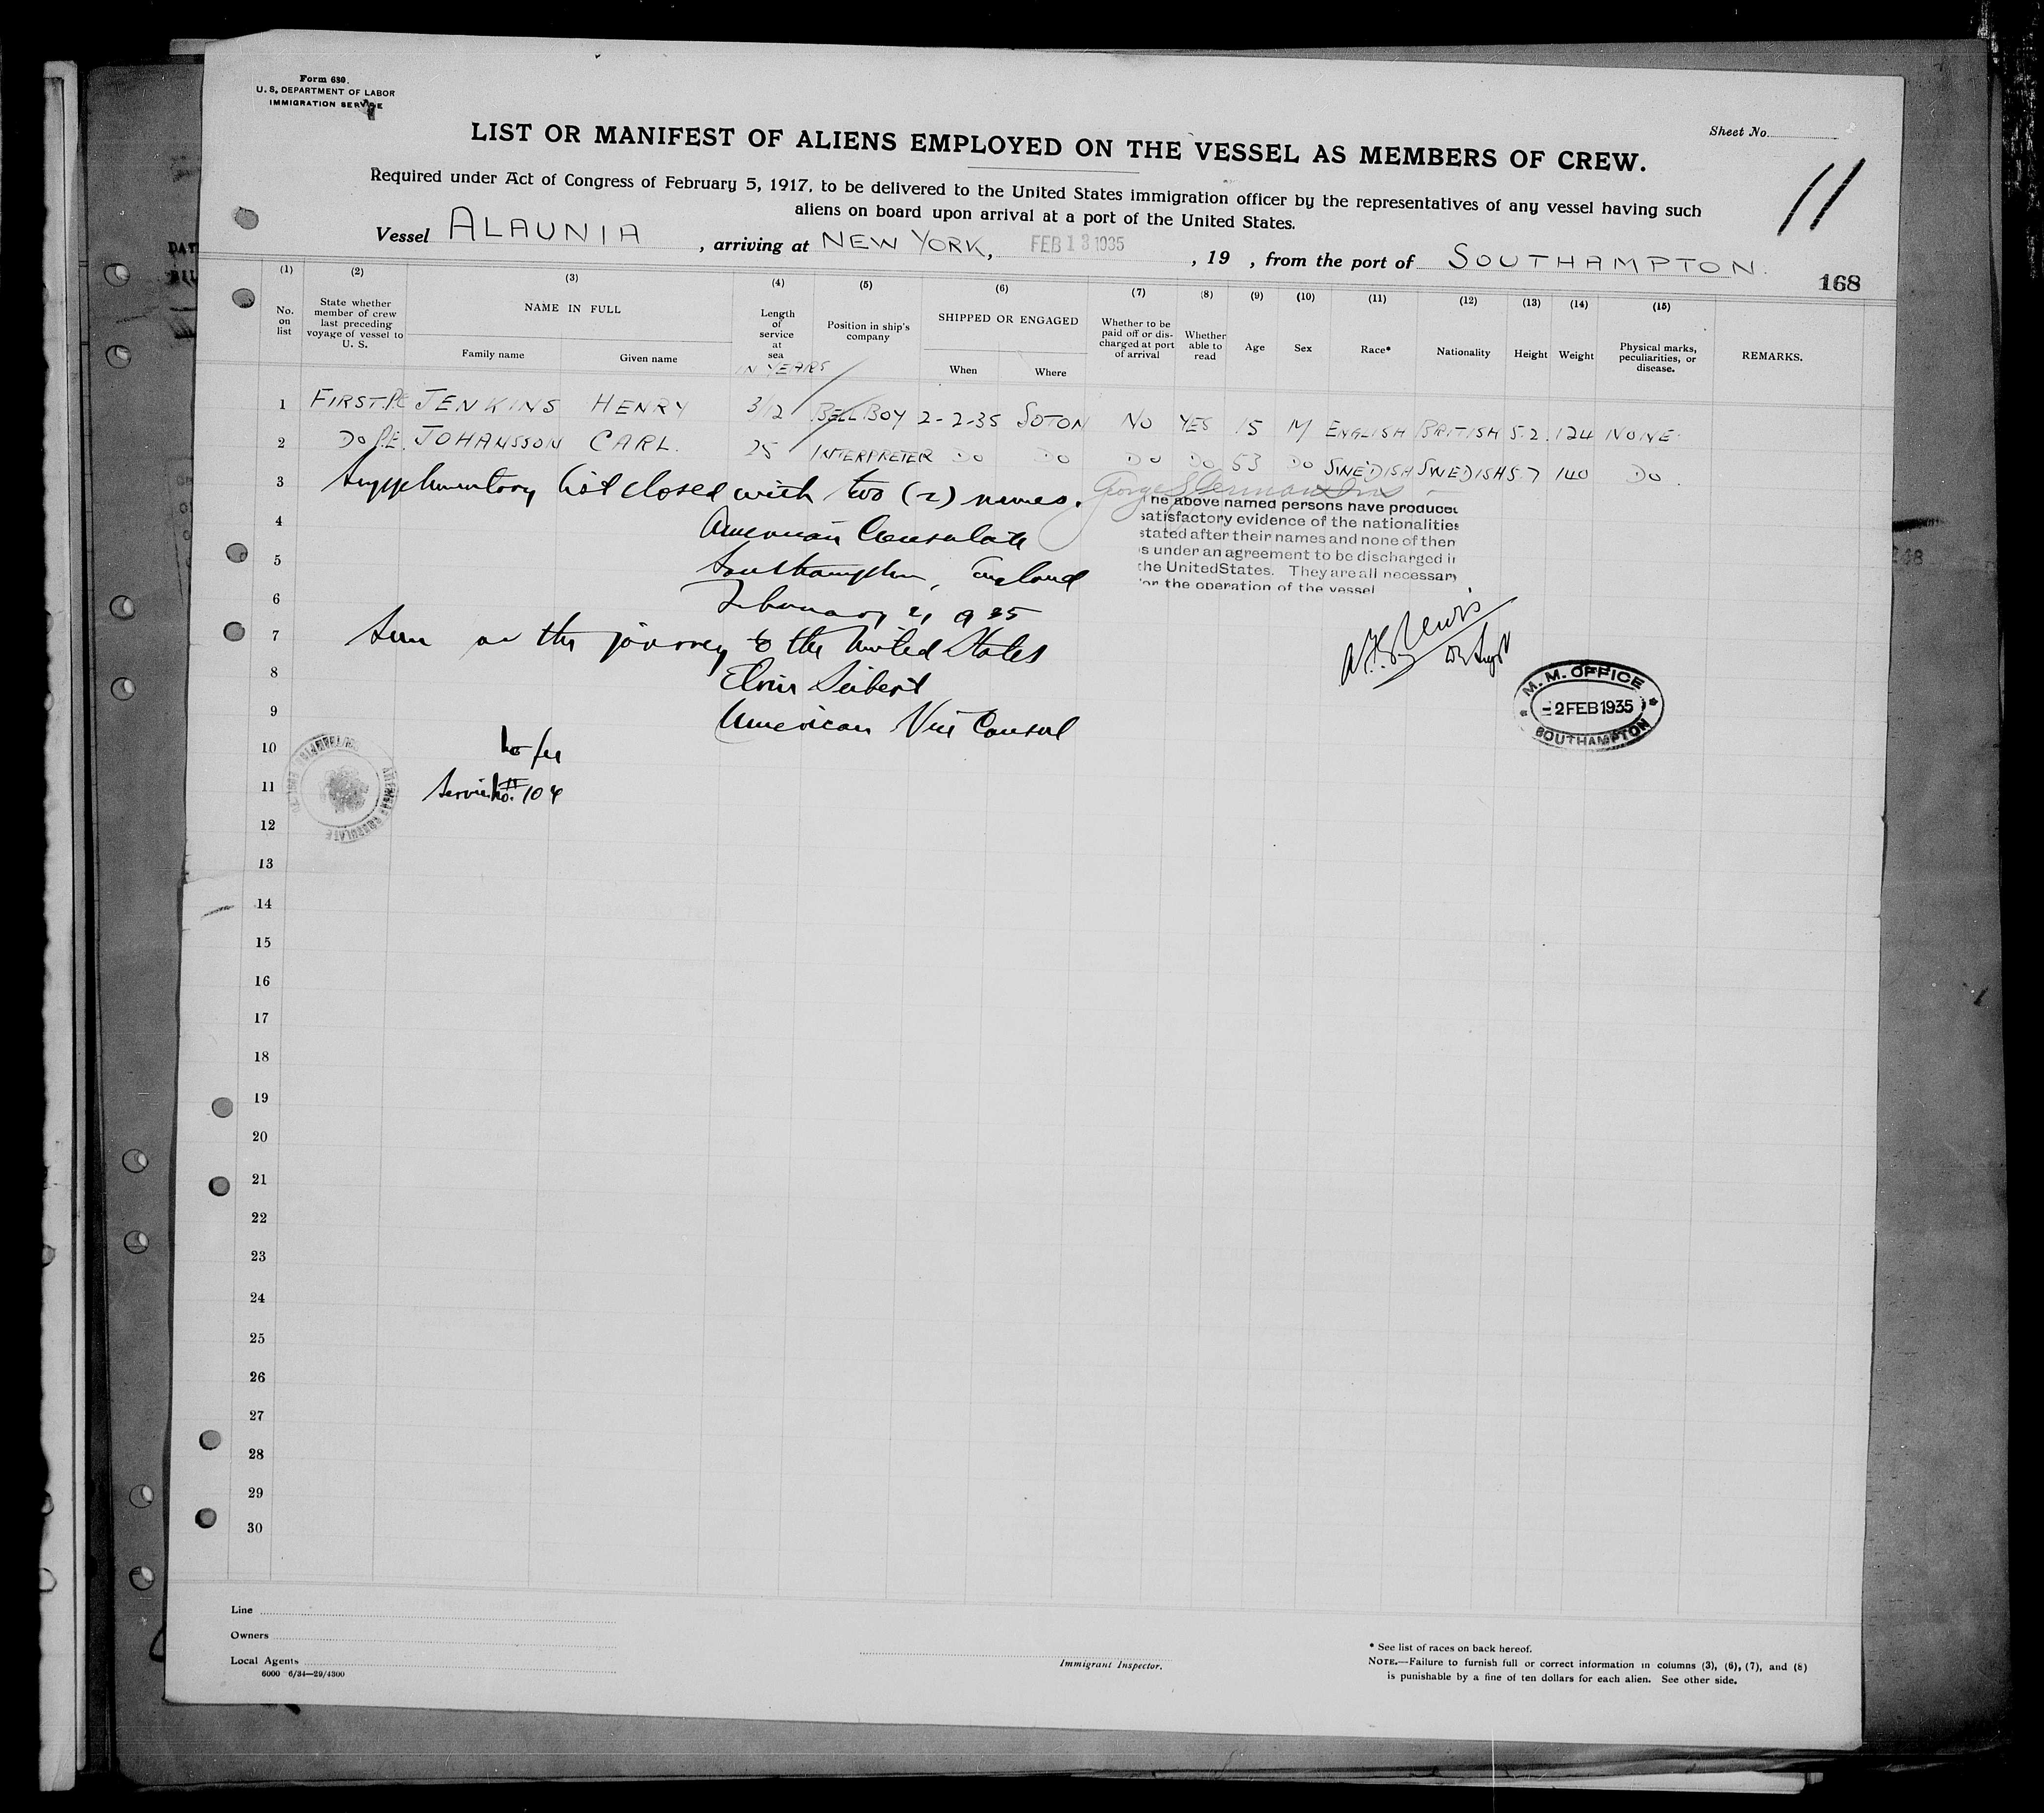 Form 680.
U. S. DEPARTMENT OF LABOR
IMMIGRATION SERVICE
Sheet No.
LIST OR MANIFEST OF ALIENS EMPLOYED ON THE VESSEL AS MEMBERS OF CREW.
11
Required under Act of Congress of February 5, 1917, to be delivered to the United States immigration officer by the representatives of any vessel having such
aliens on board upon arrival at a port of the United States.
Vessel ALAUNIA, arriving at NEW YORK, FEB 13 1935, 19 , from the port of SOUTHAMPTON.
168
(1) (2) (3) (4) (5) (6) (7) (8) (9) (10) (11) (12) (13) (14) (15)
No. on list
State whether member of crew last preceding voyage of vessel to U. S.
NAME IN FULL
Family name Given name
Length of service at sea
IN YEARS
Position in ship's company
SHIPPED OR ENGAGED
When Where
Whether to be paid off or discharged at port of arrival
Whether able to read
Age
Sex
Race*
Nationality
Height
Weight
Physical marks, peculiarities, or disease.
REMARKS.
1 FIRST. JENKINS HENRY 3/12 BELL BOY 2-2-35 SOTON NO YES 15 M ENGLISH BRITISH 5.2. 124 NONE
2 DO P.E. JOHANSSON CARL. 25 INTERPRETER DO DO DO DO 53 DO SWEDISH SWEDISH 5.7 140 DO.
3 Supplementary list closed with two (2) names.
he above named persons have produced
satisfactory evidence of the nationalities
stated after their names and none of them
s under an agreement to be discharged in
the UnitedStates. They are all necessary
or the operation of the vessel
4 American Consulate
5 Southampton, England
6 February 2, 1935
7 Seen on the journey to the United States
8 Seibert
9 American Vice Consul
M. M. OFFICE
-2 FEB 1935
SOUTHAMPTON
10 No fee
11 Service No. 104
AMERICAN CONSULATE
12
13
14
15
16
17
18
19
20
21
22
23
24
25
26
27
28
29
30
Line
Owners
Local Agents
6000 6/34—29/4300
Immigrant Inspector.
* See list of races on back hereof.
NOTE.—Failure to furnish full or correct information in columns (3), (6), (7), and (8)
is punishable by a fine of ten dollars for each alien. See other side.